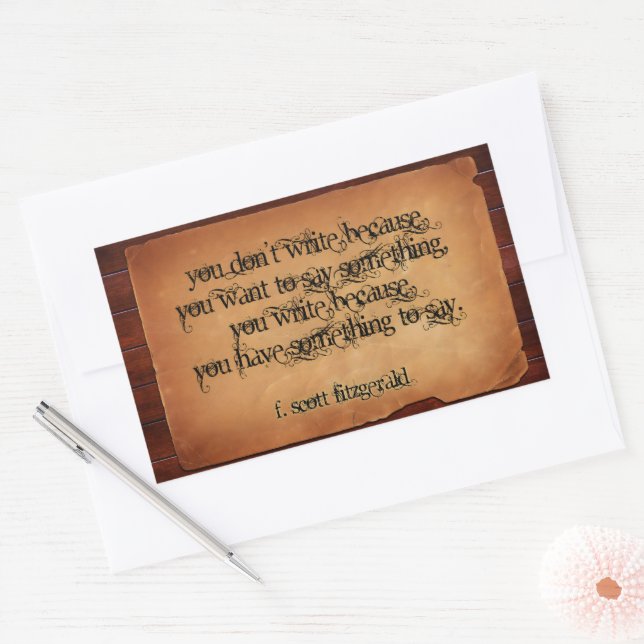 you don't write because
you want to say something,
you write because
you have something to say.
f. scott fitzgerald